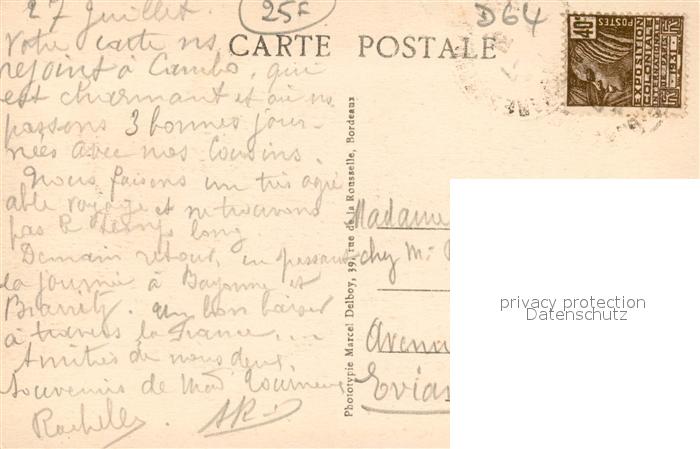 27 Juillet.
25F
D64
CARTE POSTALE
Votre carte ns
rejoint à Cambo, qui
est charmant et où ns
passons 3 bonnes jour-
nées avec nos cousins.
Nous faisons un très agré
able voyage et ne trouvons
pas le temps long
Demain retour, en passant
la journée à Bayonne et
Biarritz. un bon baiser
à travers la France....
Amitiés de nous deux,
Souvenirs de Mad
Rachelle. AR.
Phototypie Marcel Delboy, 39, rue de la Rousselle, Bordeaux
POSTES
40c
EXPOSITION
COLONIALE
INTERNATIONALE
DE PARIS
1931
Madame
chez Mr
Avenue
Evian
privacy protection
Datenschutz